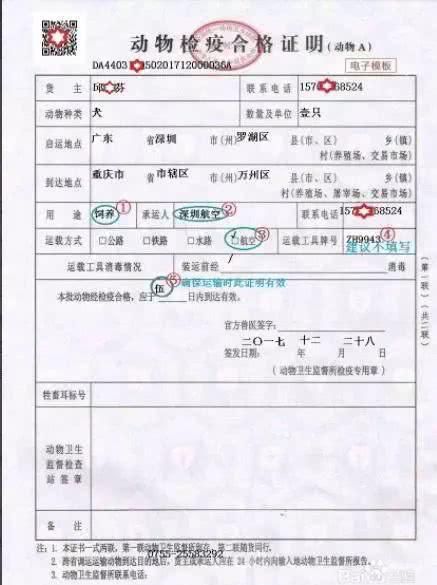 动物检疫合格证明(动物A)
电子模板
货 主 联系电话
动物种类 犬 数量及单位 壹只
启运地点 广东 省 深圳 市(州) 罗湖区 县(市、区) 乡(镇)
村(养殖场、交易市场)
到达地点 重庆市 省 市辖区 市(州) 万州区 县(市、区) 乡(镇)
村(养殖场、屠宰场、交易市场)
用 途 饲养 ① 承运人 深圳航空 ② 联系电话
运载方式 □公路 □铁路 □水路 □航空 ③ 运载工具牌号 ZH9943 ④
建议不填写
运载工具消毒情况 装运前经 / 消毒
⑤ 确保运输时此证明有效
本批动物经检疫合格,应于 伍 日内到达有效。
官方兽医签字:
二〇一七 十二 二十八
签发日期: 年 月 日
(动物卫生监督所检疫专用章)
(第一联)(共二联)
牲畜耳标号
动物卫生
监督检查
站签章
备 注
注:1. 本证书一式两联,第一联动物卫生监督所留存,第二联随货同行。
0755-25583292
2. 跨省调运动物到达目的地后,货主或承运人应在 24 小时内向输入地动物卫生监督所报告。
3. 动物卫生监督所联系电话: